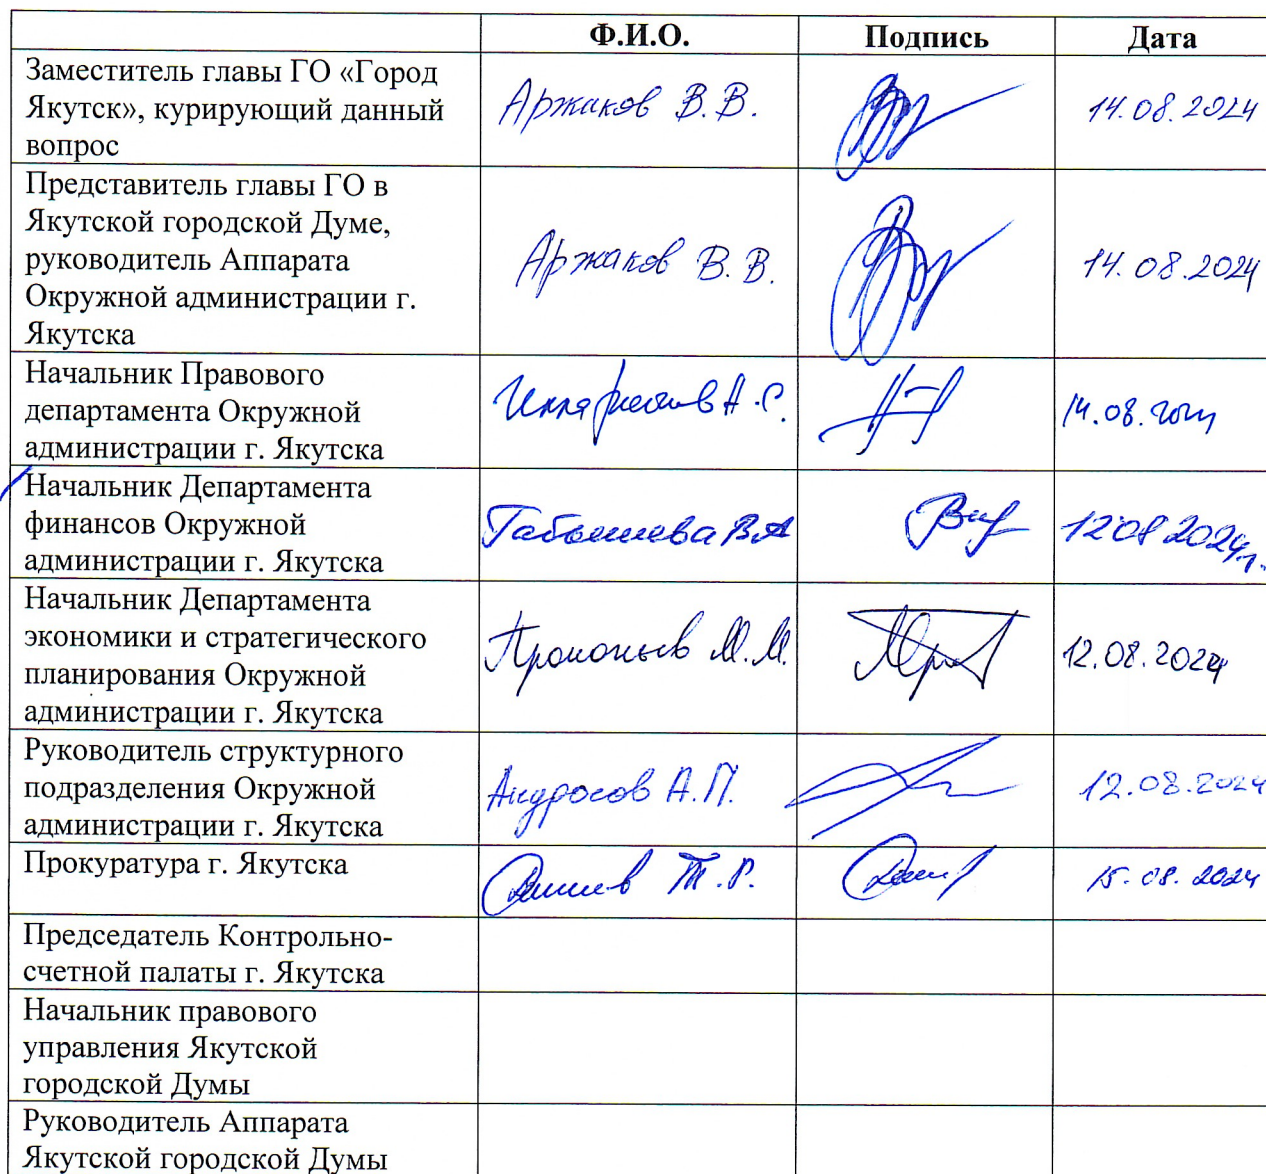 Ф.И.О. Подпись Дата
Заместитель главы ГО «Город
Якутск», курирующий данный
вопрос
Аржаков В.В. 14.08.2024
Представитель главы ГО в
Якутской городской Думе,
руководитель Аппарата
Окружной администрации г.
Якутска
Аржаков В.В. 14.08.2024
Начальник Правового
департамента Окружной
администрации г. Якутска
А.С. 14.08.2024
Начальник Департамента
финансов Окружной
администрации г. Якутска
Габышева В.А 12.08.2024г.
Начальник Департамента
экономики и стратегического
планирования Окружной
администрации г. Якутска
Прокопьев М.М. 12.08.2024
Руководитель структурного
подразделения Окружной
администрации г. Якутска
Андросов А.П. 12.08.2024
Прокуратура г. Якутска
Т.Р. 15.08.2024
Председатель Контрольно-
счетной палаты г. Якутска
Начальник правового
управления Якутской
городской Думы
Руководитель Аппарата
Якутской городской Думы